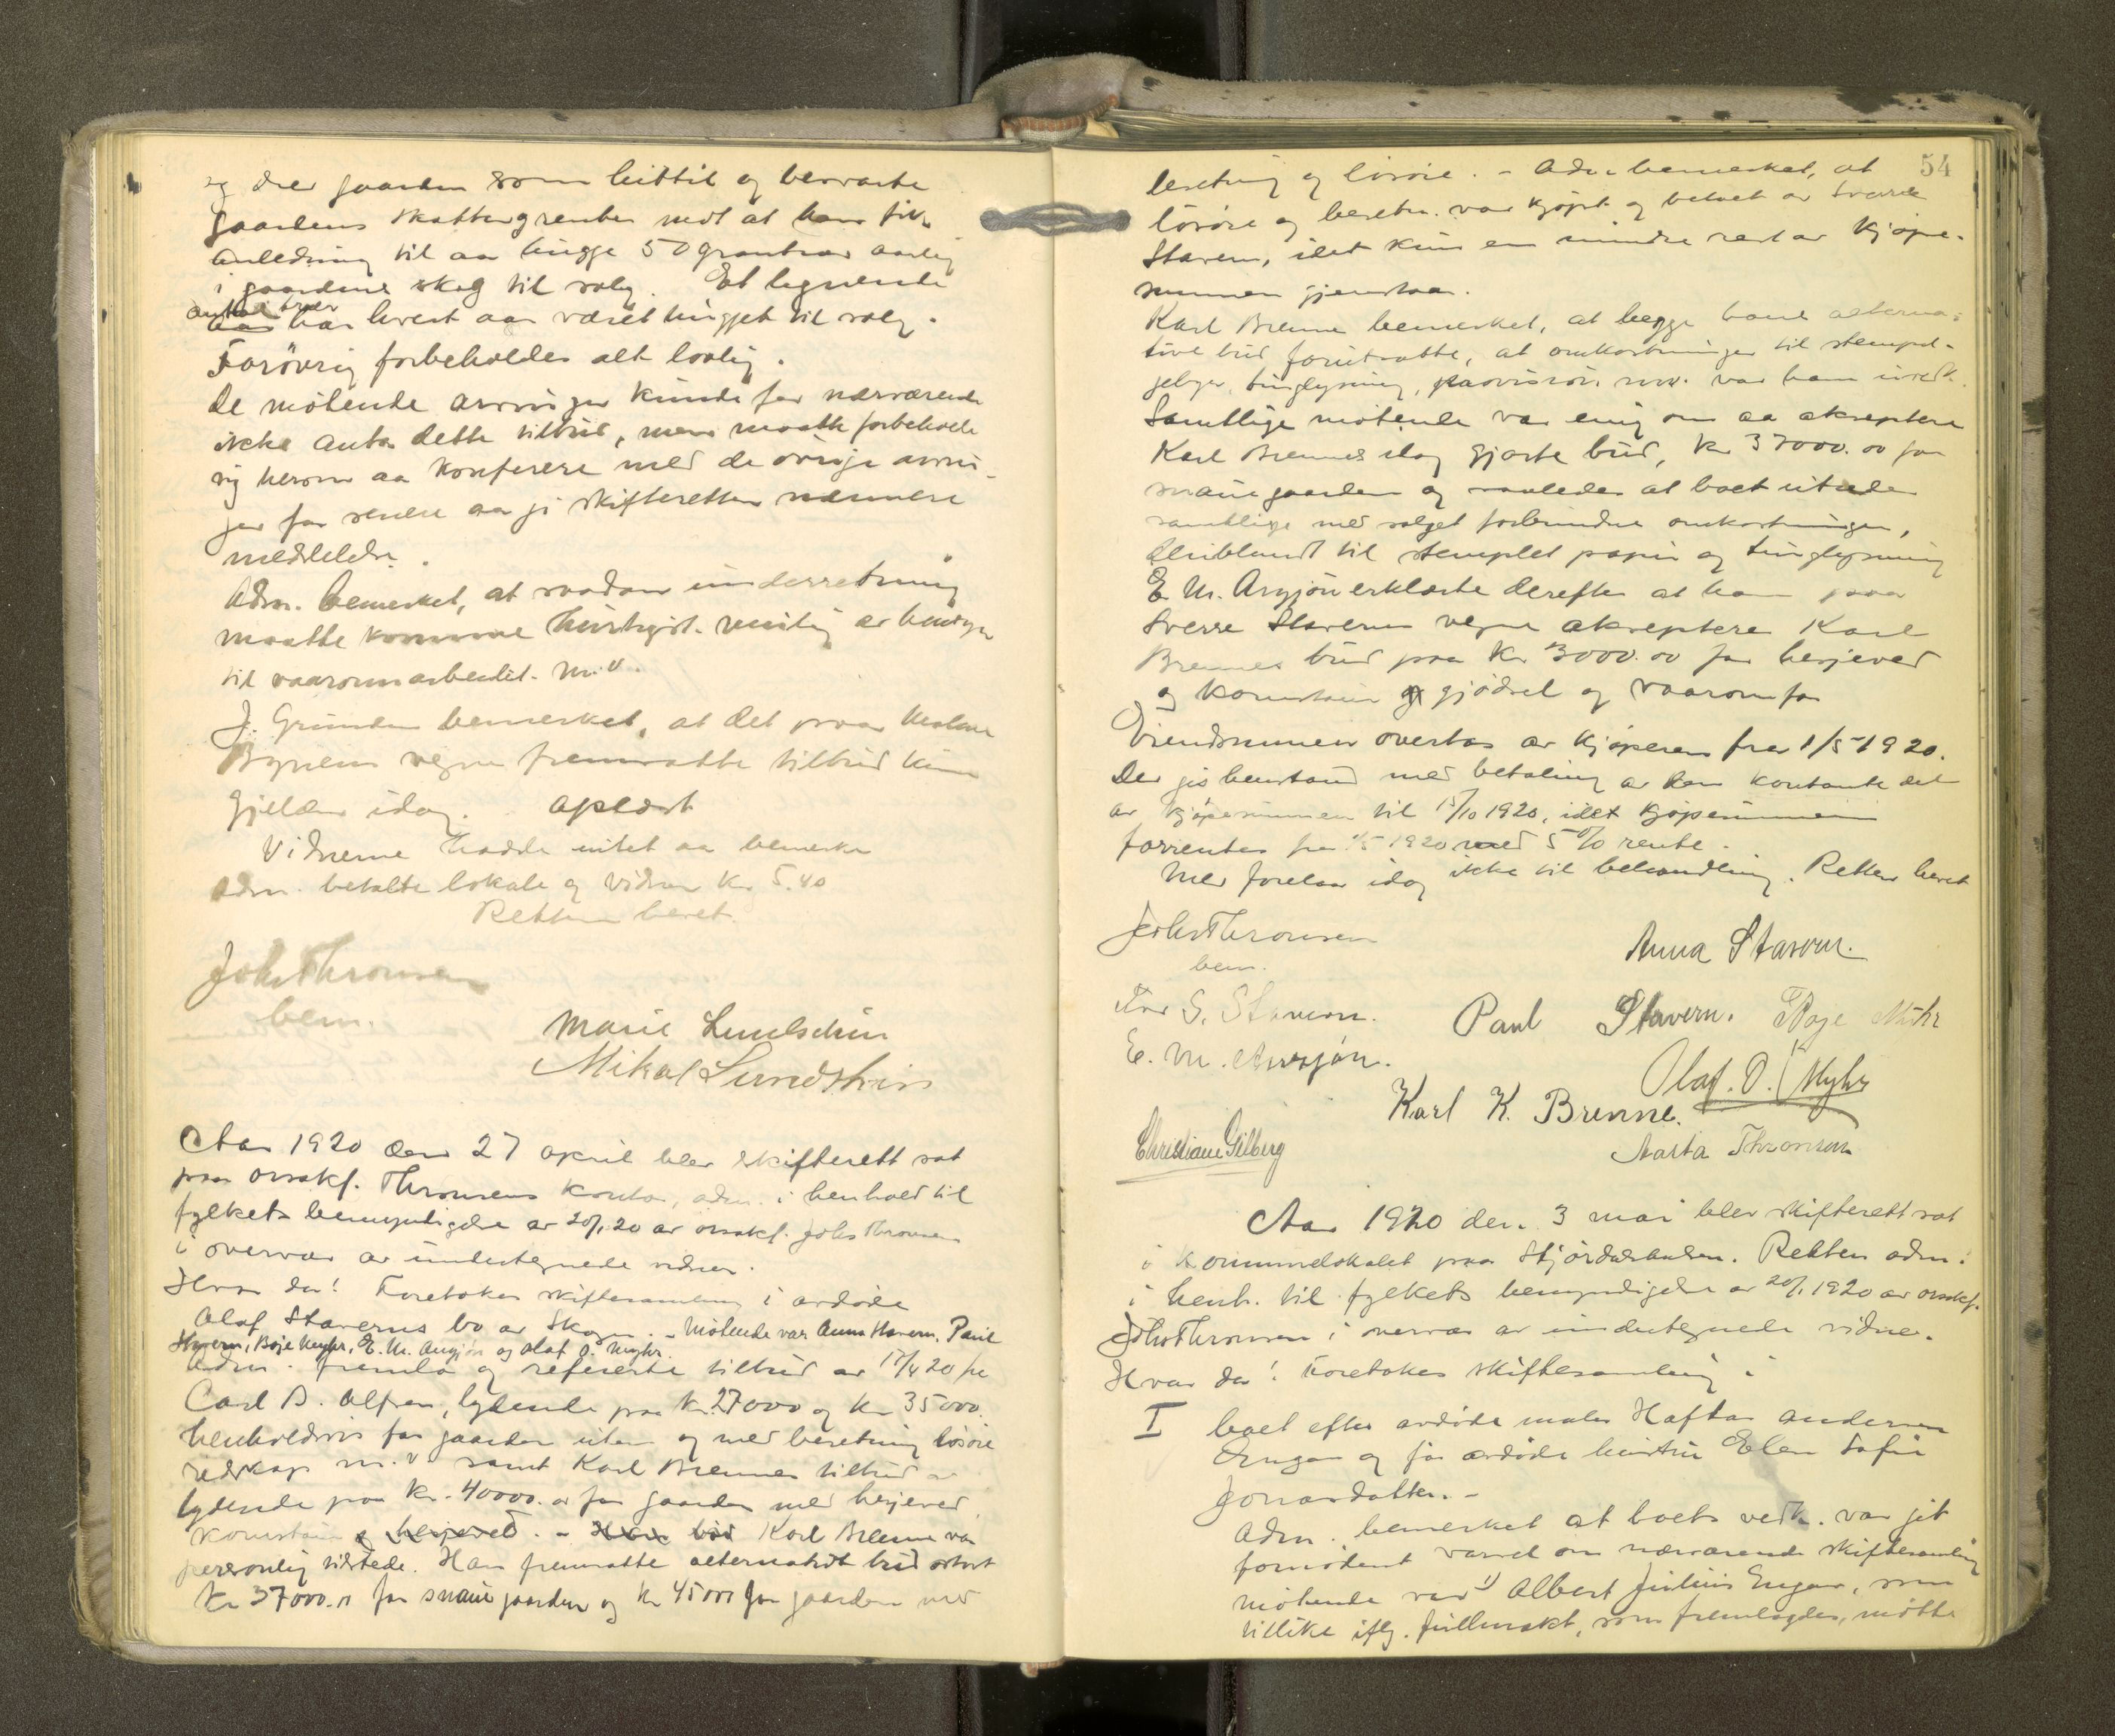 og drev gaarden som hittil og besvarte
gaardens skatter og renter mot at han fik
anledning til aa hugge 50 grantrær aarlig
i gaardens skog til salg. Et lignende
antal trær
har hvert aar været hugget til salg.
Forøvrig forbeholdes alt lovlig.
De møtende arvinger kunde for nærværende
ikke anta dette tilbud, men maatte forbeholde
sig herom aa konferere med de øvrige arvin-
ger for senere aa gi skifteretten nærmere
meddelelse.
Adm. bemerket, at saadan underretning
maatte komme hurtigst mulig av hensyn
til vaaronnarbeidet m.v.
J. Grunden bemerket, at det paa
vegne fremsatte tilbud kun
gjelder idag. Oplæst
Vidnerne hadde intet aa bemerke
Adm. betalte lokale og vidner kr. 5.40
Retten hevet.
Johs Thronsen
bem.
Marie Lundskin
Mikal Lundskin
Aar 1920 den 27 april blev skifterett sat
paa orsakf. Thronsens kontor, adm. i henhold til
fylkets bemyndigelse av 20/1 20 av orsakf. Johs Thronsen
i overvær av undertegnede vidner.
Hvor da! Foretokes skiftesamling i avdøde
Olaf Staverns bo av Skogn. - Møtende var Anna Stavern, Paul
Stavern, Boje Myhr, E. M. Avsjøn og Olaf O. Myhr.
Adm. fremla og refererte tilbud av 17/4 20 fra
Carl B. Alfsen, lydende paa kr. 27000 og kr 35000.
henholdsvis for gaarden uten og med besetning løsøre
redskap m.v samt Karl Brennes tilbud
lydende paa kr. 40000.00 for gaarden med hesjeved
kornstaur og hesjeved. - Han bød Karl Brenne var
personlig tilstede. Han fremsatte alternativt bud stort
kr 37000.00 for snaugaarden og kr 45000 for gaarden med
54
besetning og løsøre. - Adm. bemerket, at
løsøre og besetn. var kjøpt og betalt av Sverre
Stavern, idet kun en mindre rest av kjøpe-
summen gjenstaar.
Karl Brenne bemerket, at begge hans alterna-
tive bud forutsatte, at omkostninger til stempel-
gebyr, tinglysning, provision mv. var ham uvedk.
Samtlige møtende var enig om aa akseptere
Karl Brennes idag gjorte bud, kr 37000.00 for
snaugaarden og saaledes at boet utreder
samtlige med salget forbundne omkostninger,
deriblandt til stemplet papir og tinglysning
E. M. Avsjøn erklærte derefter at han paa
Sverre Staverns vegne akseptere Karl
Brennes bud paa kr 3000.00 for hesjeved
og kornstaur gjødsel og vaaronn for
Eiendommen overtas av kjøperen fra 1/5 1920.
Der gis henstand med betaling av den kontante del
av kjøpesummen til 15/10 1920, idet kjøpesummen
forrentes fra 1/5 1920 med 5 % rente.
Mer forelaa idag ikke til behandling. Retten hevet
Johs Thronsen
bem.
Anna Stavern.
for S. Stavern.
Paul Stavern. Boje Myhr
E. M. Avsjøn.
Olaf. O. Myhr
Karl K. Brenne.
Christiane Gilberg
Marta Thronsen
Aar 1920 den 3 mai blev skifterett sat
i kommunelokalet paa Stjørdalshalsen. Retten adm.
i henh. til fylkets bemyndigelse av 20/1 1920 av orsakf.
Johs Thronsen i overvær av undertegnede vidner.
Hvor da! Foretokes skiftesamling i
I boet efter avdøde maler Haftor Andersen
Engan og før avdøde hustru Elen Sofie
Jonasdatter. -
Adm. bemerket at boets vedk. var git
fornødent varsel om nærværende skiftesamling
møtende var 1) Albert Julius Engan, som
tillike iflg. fuldmakt, som fremlagdes, møtte